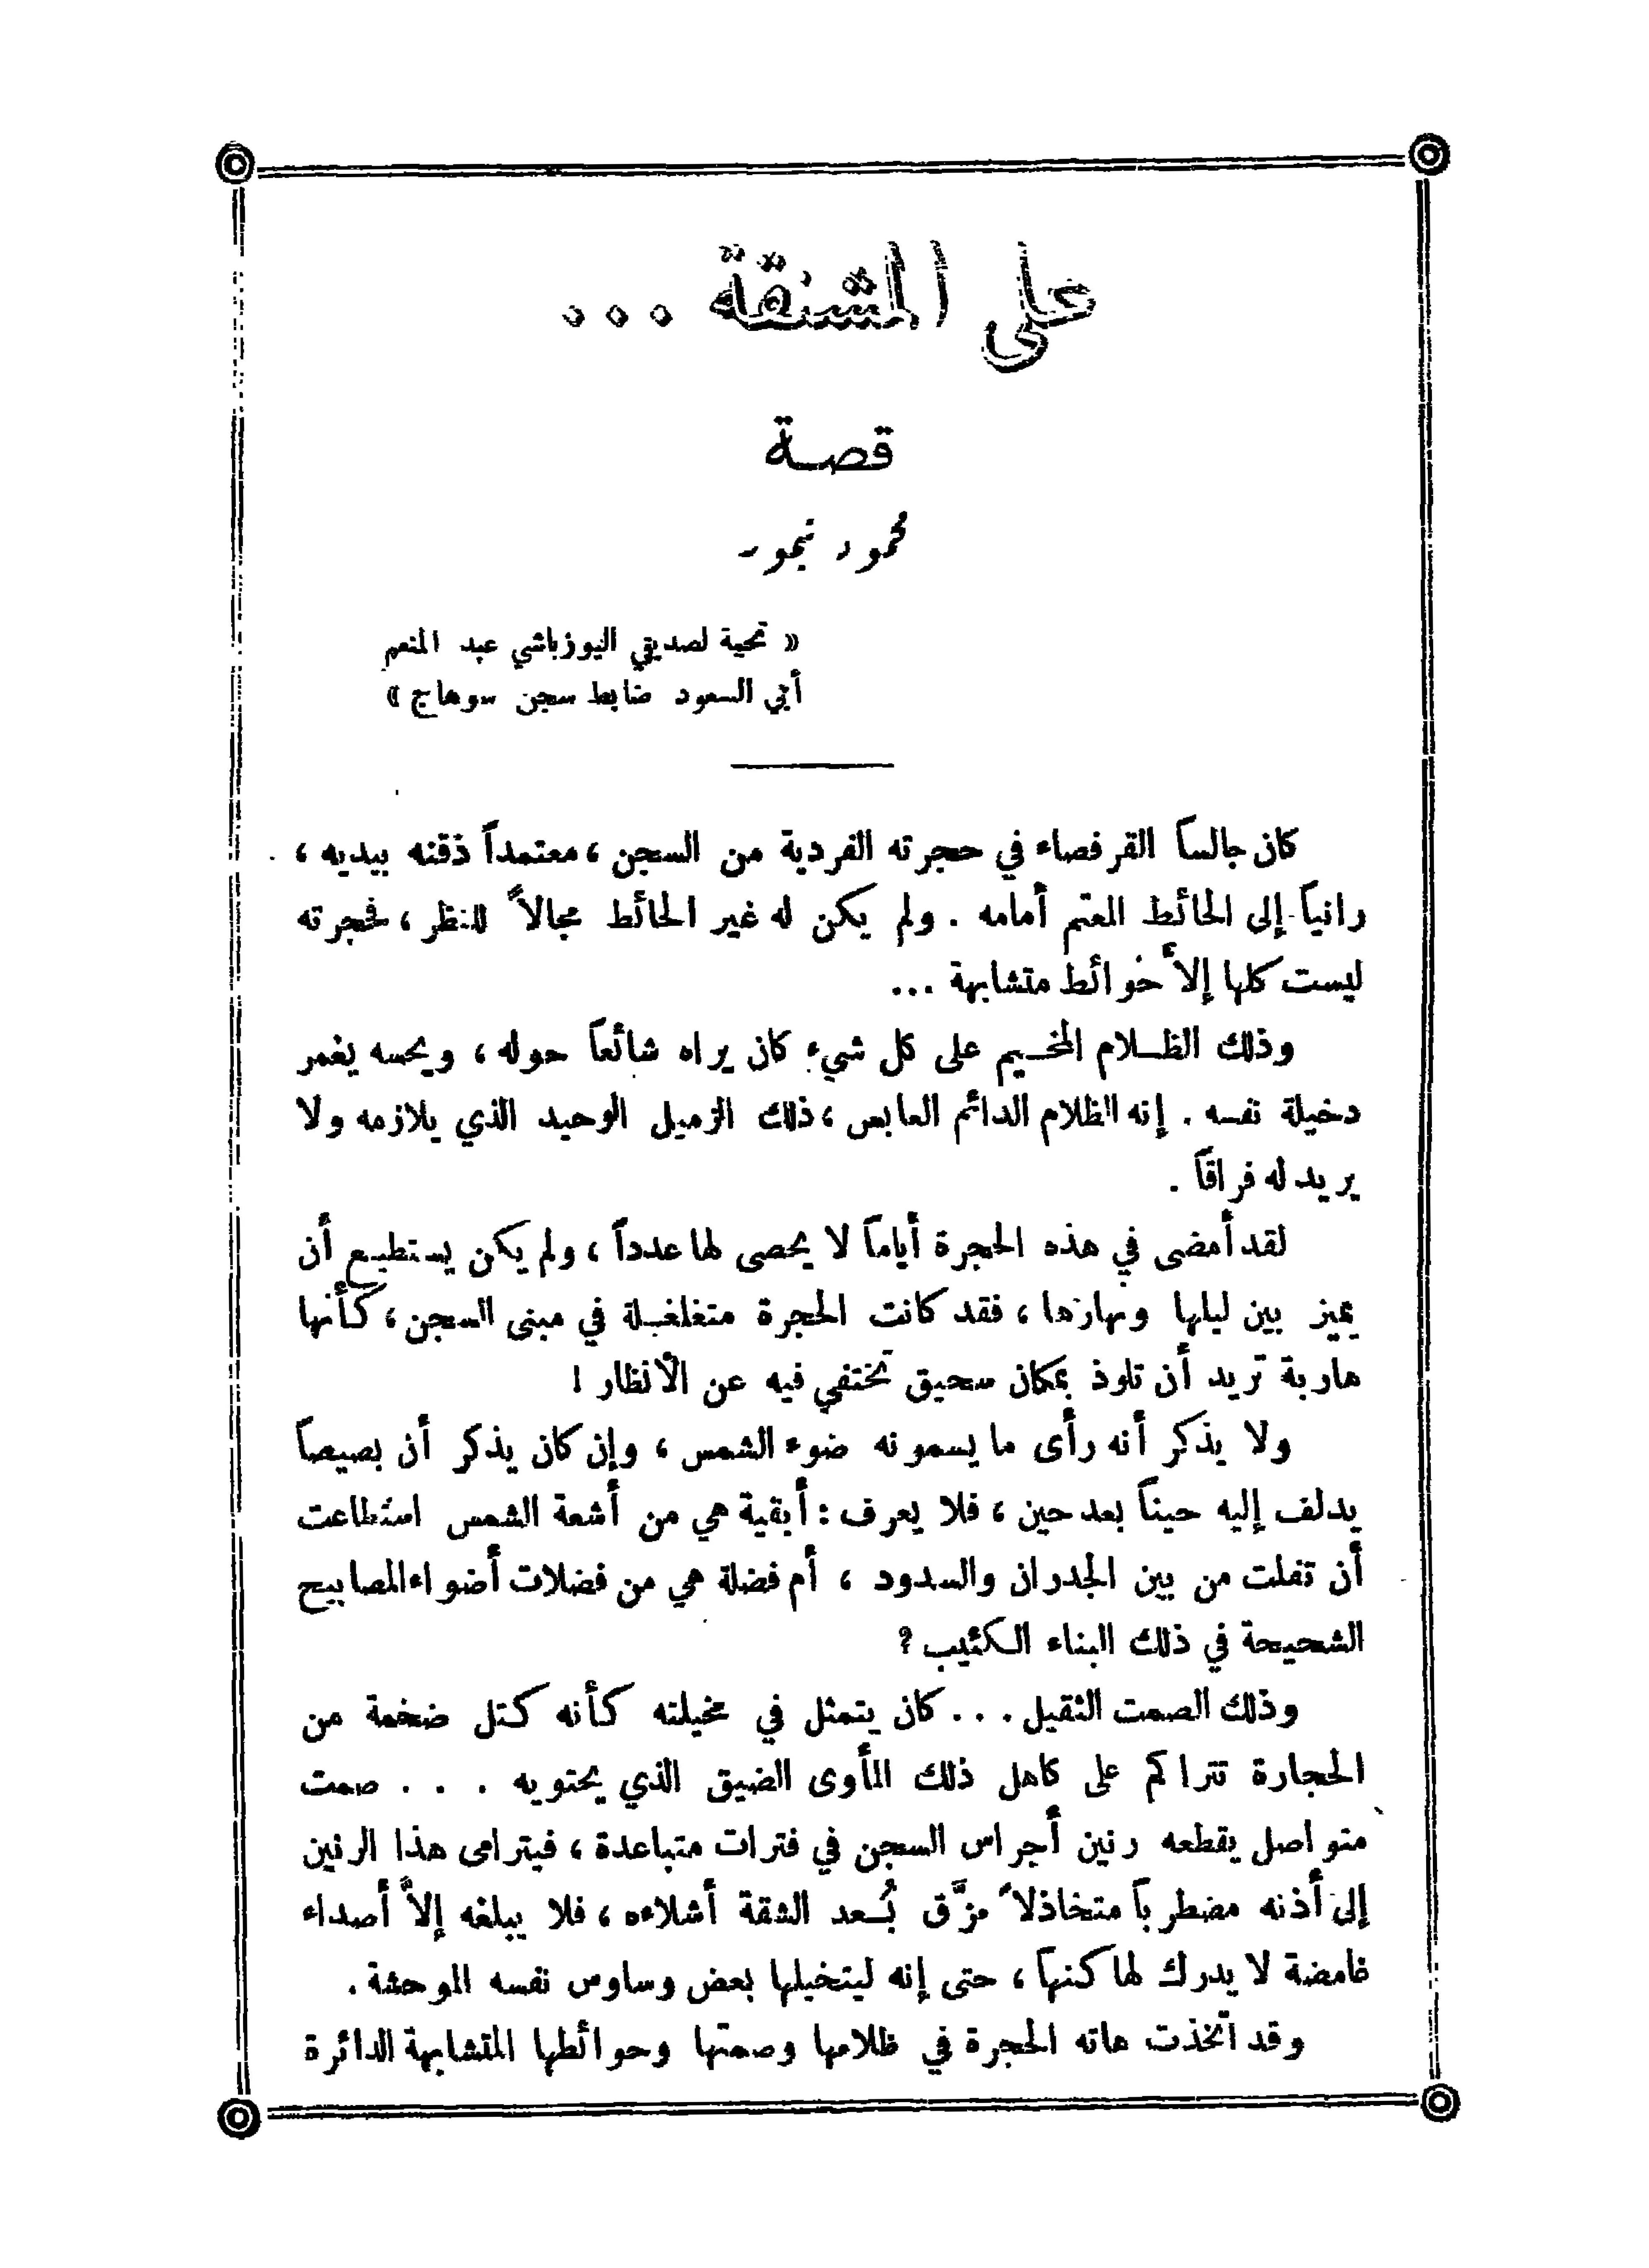 على المشنقة ...
قصة
محمود تيمور
« تحية لصديقي اليوزباشي عبد المنعم
أبي السعود ضابط سجن سوهاج »
كان جالساً القرفصاء في حجرته الفردية من السجن ، معتمداً ذقنه بيديه ،
رانياً إلى الحائط المعتم أمامه . ولم يكن له غير الحائط مجالاً للنظر ، فحجرته
ليست كلها إلاَّ حوائط متشابهة ...
وذلك الظلام المخيم على كل شيء كان يراه شائعاً حوله ، ويحسه يغمر
دخيلة نفسه . إنه الظلام الدائم العابس ، ذلك الزميل الوحيد الذي يلازمه ولا
يريد له فراقاً .
لقد أمضى في هذه الحجرة أياماً لا يحصى لها عدداً ، ولم يكن يستطيع أن
يميز بين ليلها ونهارها ، فقد كانت الحجرة متغلغلة في مبنى السجن ، كأنها
هاربة تريد أن تلوذ بمكان سحيق تختفي فيه عن الأنظار !
ولا يذكر أنه رأى ما يسمونه ضوء الشمس ، وإن كان يذكر أن بصيصاً
يدلف إليه حيناً بعد حين ، فلا يعرف : أبقية هي من أشعة الشمس استطاعت
أن تفلت من بين الجدران والسدود ، أم فضلة هي من فضلات أضواء المصابيح
الشحيحة في ذلك البناء الكئيب ؟
وذلك الصمت الثقيل ... كان يتمثل في مخيلته كأنه كتل ضخمة من
الحجارة تتراكم على كاهل ذلك المأوى الضيق الذي يحتويه . . . صمت
متواصل يقطعه رنين أجراس السجن في فترات متباعدة ، فيترامى هذا الرنين
إلى أذنه مضطرباً متخاذلاً مزَّق بُعد الشقة أشلاءه ، فلا يبلغه إلاَّ أصداء
غامضة لا يدرك لها كنهاً ، حتى إنه ليتخيلها بعض وساوس نفسه الموحشة .
وقد اتخذت هاته الحجرة في ظلامها وصمتها وحوائطها المتشابهة الدائرة